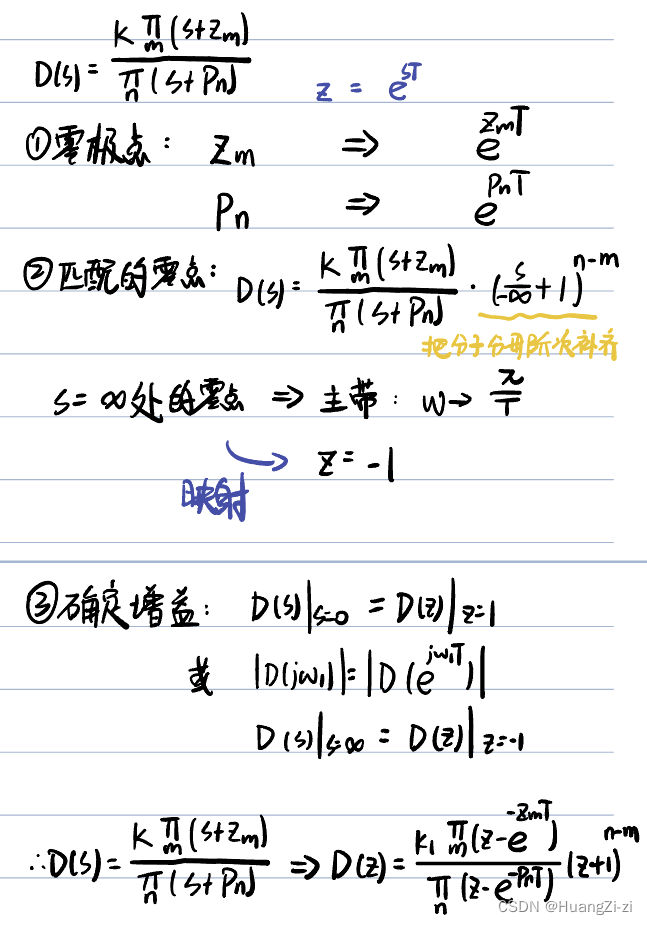 D(s) = \frac{K \prod_m (s+z_m)}{\prod_n (s+p_n)}
z = e^{sT}
①零极点： z_m ⇒ e^{z_m T}
p_n ⇒ e^{p_n T}
②匹配的零点： D(s) = \frac{K \prod_m (s+z_m)}{\prod_n (s+p_n)} · (\frac{s}{-∞}+1)^{n-m}
把分子分母阶次补齐
s=∞处的零点 ⇒ 主带： w→ \frac{π}{T}
映射 z = -1
③确定增益： D(s)|_{s=0} = D(z)|_{z=1}
或 |D(jw_1)| = |D(e^{jw_1T})|
D(s)|_{s=∞} = D(z)|_{z=-1}
∴D(s) = \frac{K \prod_m (s+z_m)}{\prod_n (s+p_n)} ⇒ D(z) = \frac{K_1 \prod_m (z-e^{-z_mT})}{\prod_n (z-e^{-p_nT})} (z+1)^{n-m}
CSDN @HuangZi-zi